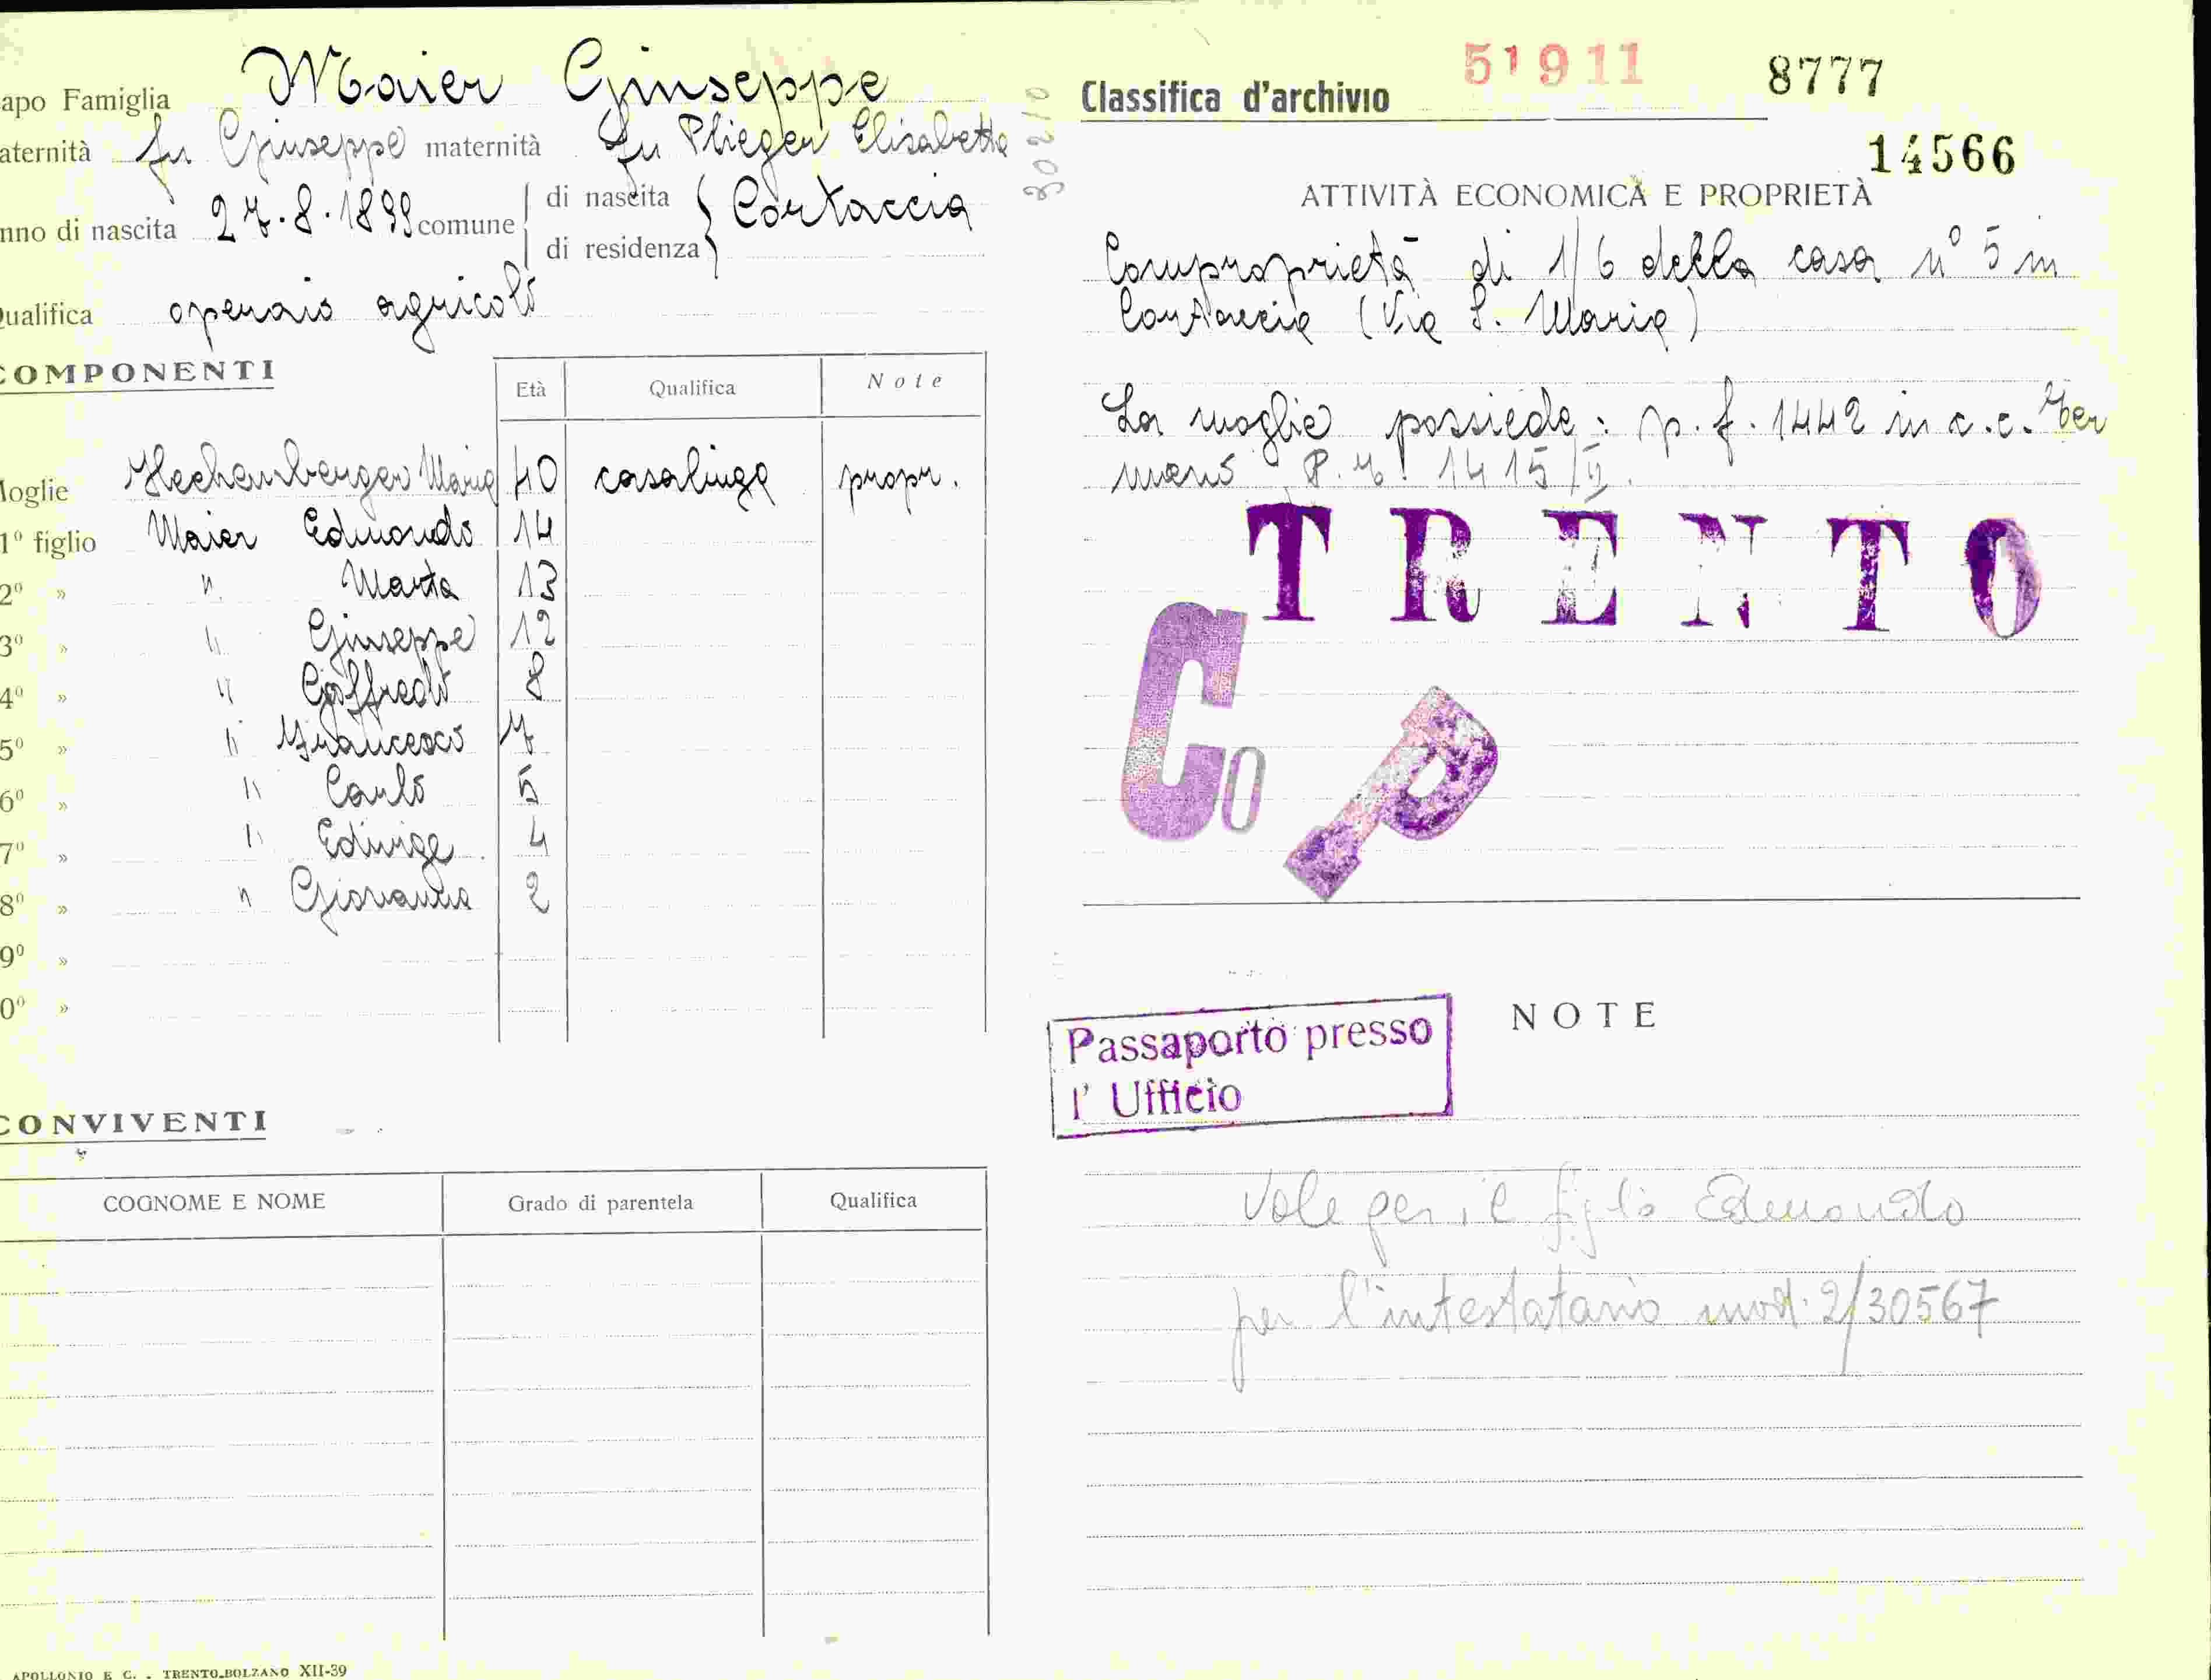 apo Famiglia Maier Giuseppe
aternità fu Giuseppe maternità fu Plieger Elisabetta
nno di nascita 27.8.1899 comune di nascita di residenza Cortaccia
Qualifica operaio agricolo
COMPONENTI
Età Qualifica Note
Moglie Hechenberger Maria 40 casalinga propr.
1º figlio Maier Edmondo 14
2º » " Marta 13
3º » " Giuseppe 12
4º » " Goffredo 8
5º » " Francesco 7
6º » " Carlo 5
7º » " Edwige 4
8º » " Giovanna 2
9º »
0º »
CONVIVENTI
COGNOME E NOME Grado di parentela Qualifica
APOLLONIO E C. - TRENTO-BOLZANO XII-39
30210
Classifica d'archivio 51911 8777
14566
ATTIVITÀ ECONOMICA E PROPRIETÀ
Comproprietà di 1/6 della casa nº 5 in
Cortaccia (Via S. Maria)
La moglie possiede: p.f. 1442 in c.c. Ter
meno P.T. 1415/II.
TRENTO
Co
P
NOTE
Passaporto presso
l' Ufficio
Vale per il figlio Edmondo
per l'intestatario mod. 2/30567